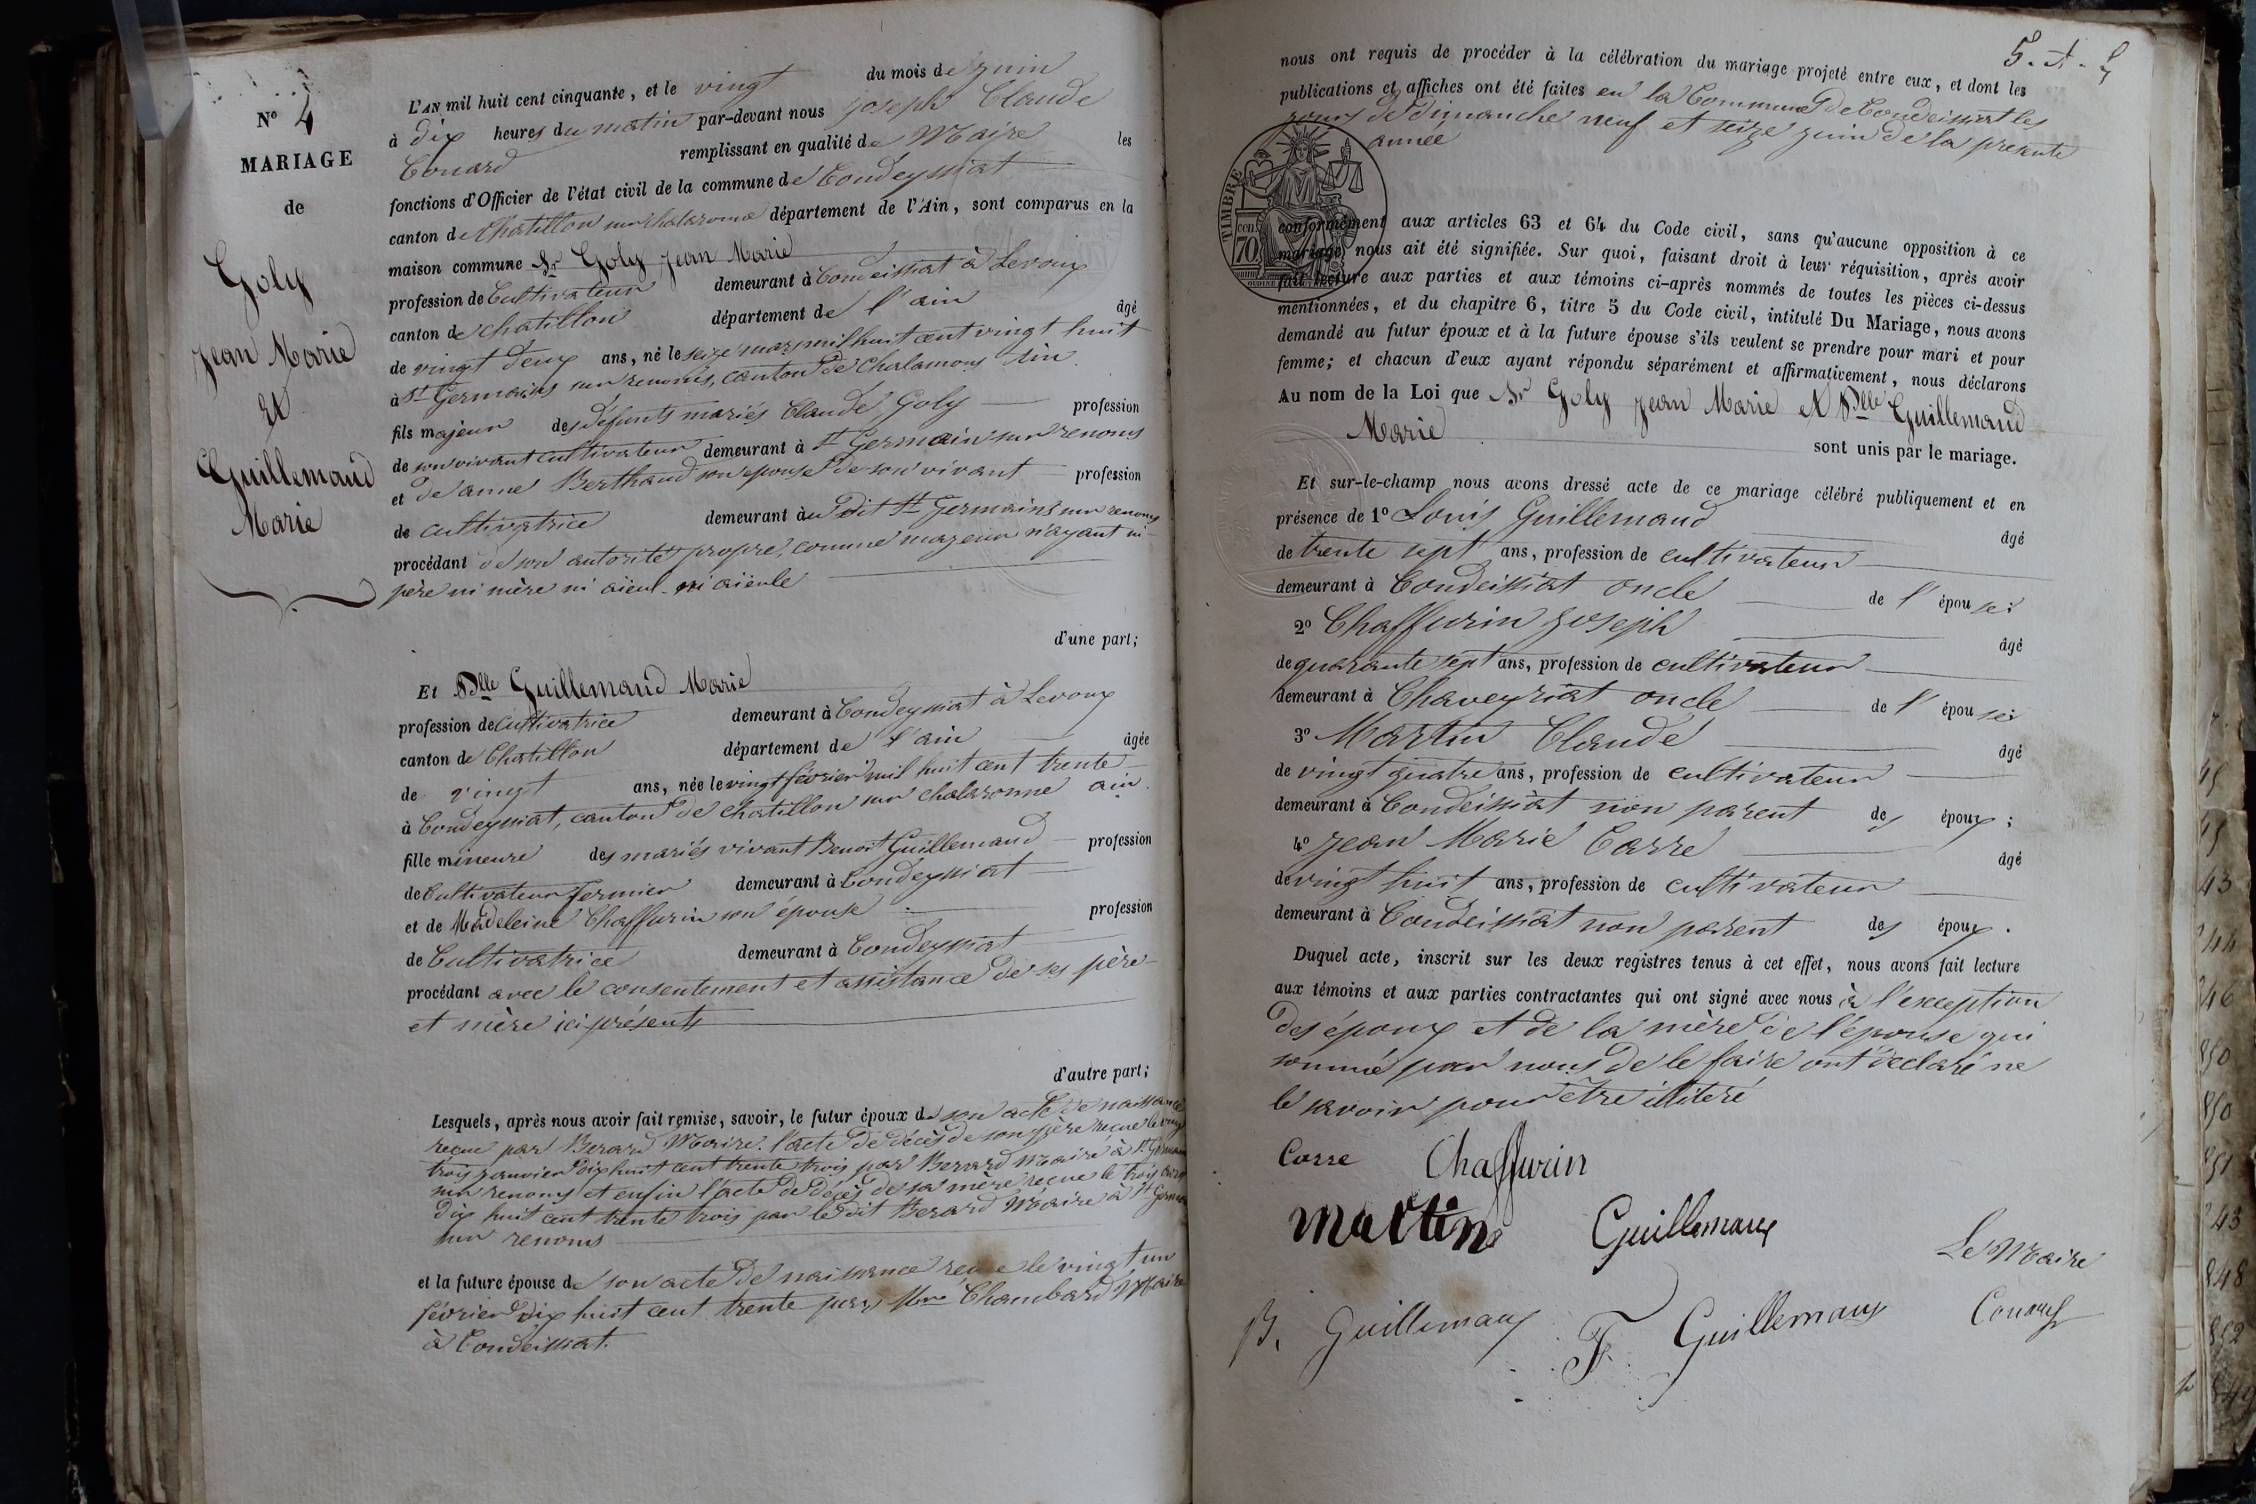 N° 4
MARIAGE
de
Goly
Jean Marie
Et
Guillemaud
Marie
L'AN mil huit cent cinquante, et le vingt du mois de juin
à dix heures du matin par-devant nous joseph Claude
Couard remplissant en qualité de Maire les
fonctions d'Officier de l'état civil de la commune de Condeyssiat
canton de Chatillon sur chalaronne département de l'Ain, sont comparus en la
maison commune Sr Goly Jean Marie
profession de Cultivateur demeurant à Condeissiat à Levoux
canton de chatillon département de l'ain âgé
de vingt deux ans, né le seize mars mil huit cent vingt huit
à St Germains sur renoms, canton de chalamons ain
fils majeur des défunts mariés Claude Goly profession
de son vivant cultivateur demeurant à St Germain sur renoms
et de anne Berthaud son epouse de son vivant profession
de cultivatrice demeurant au dit St germains sur renoms
procédant de son autorité propre, comme majeur n'ayant ni
père ni mère ni aïeul ni aïeule
d'une part;
Et Dlle Guillemaud Marie
profession de cultivatrice demeurant à Condeyssiat à Levoux
canton de Chatillon département de l'ain âgée
de vingt ans, née le vingt février mil huit cent trente
à Condeyssiat, canton de chatillon sur chalaronne ain
fille mineure des mariés vivant Benoit Guillemaud profession
de Cultivateur fermier demeurant à Condeyssiat
et de Madeleine Chaffurin son épouse profession
de Cultivatrice demeurant à Condeyssiat
procédant avec le consentement et assistance de ses père
et mère ici présents
d'autre part;
Lesquels, après nous avoir fait remise, savoir, le futur époux de son acte de naissance
reçue par Berard Maire. l'acte de décès de son père reçue le vingt
trois janvier dix huit cent trente trois par Berard Maire à St Germain
sur renoms et enfin l'acte de décès de sa mère reçue le trois
dix huit cent trente trois par le dit Berard Maire à St Germain
sur renoms
et la future épouse de son acte de naissance reçue le vingt un
février dix huit cent trente par Chambard Maire
à Condeissiat.
nous ont requis de procéder à la célébration du mariage projeté entre eux, et dont les
publications et affiches ont été faites en la Commune de Condeissiat les
jours de dimanche neuf et seize juin de la presente
année
TIMBRE
70
conformément aux articles 63 et 64 du Code civil, sans qu'aucune opposition à ce
mariage nous ait été signifiée. Sur quoi, faisant droit à leur réquisition, après avoir
fait lecture aux parties et aux témoins ci-après nommés de toutes les pièces ci-dessus
mentionnées, et du chapitre 6, titre 5 du Code civil, intitulé Du Mariage, nous avons
demandé au futur époux et à la future épouse s'ils veulent se prendre pour mari et pour
femme; et chacun d'eux ayant répondu séparément et affirmativement, nous déclarons
Au nom de la Loi que Sr Goly Jean Marie et Dlle Guillemaud
Marie sont unis par le mariage.
Et sur-le-champ nous avons dressé acte de ce mariage célébré publiquement et en
présence de 1° Louis Guillemaud âgé
de trente sept ans, profession de cultivateur
demeurant à Condeissiat oncle de l'épouse;
2° Chaffurin joseph âgé
de quarante sept ans, profession de cultivateur
demeurant à Chaveyriat oncle de l'épouse;
3° Martin Claude âgé
de vingt quatre ans, profession de cultivateur
demeurant à Condeissiat non parent des époux;
4° Jean Marie Carre âgé
de vingt huit ans, profession de cultivateur
demeurant à Condeissiat non parent des époux.
Duquel acte, inscrit sur les deux registres tenus à cet effet, nous avons fait lecture
aux témoins et aux parties contractantes qui ont signé avec nous à l'exception
des époux et de la mère de l'épouse qui
sommé par nous de le faire ont déclaré ne
le savoir pour être illitéré
Carre Chaffurin
Martin Guillemaud
Le Maire
B. Guillemaud F. Guillemaud Couard